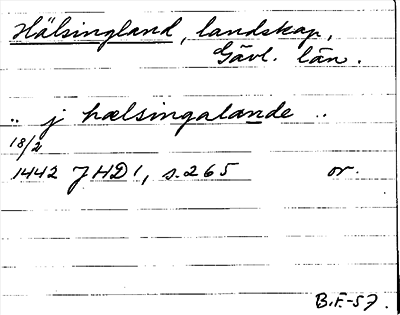 Hälsingland, landskap,
Gävl. län.
.. j hælsingalande ..
18/2
1442 JHD 1, s. 265 or.
B.F.-57.